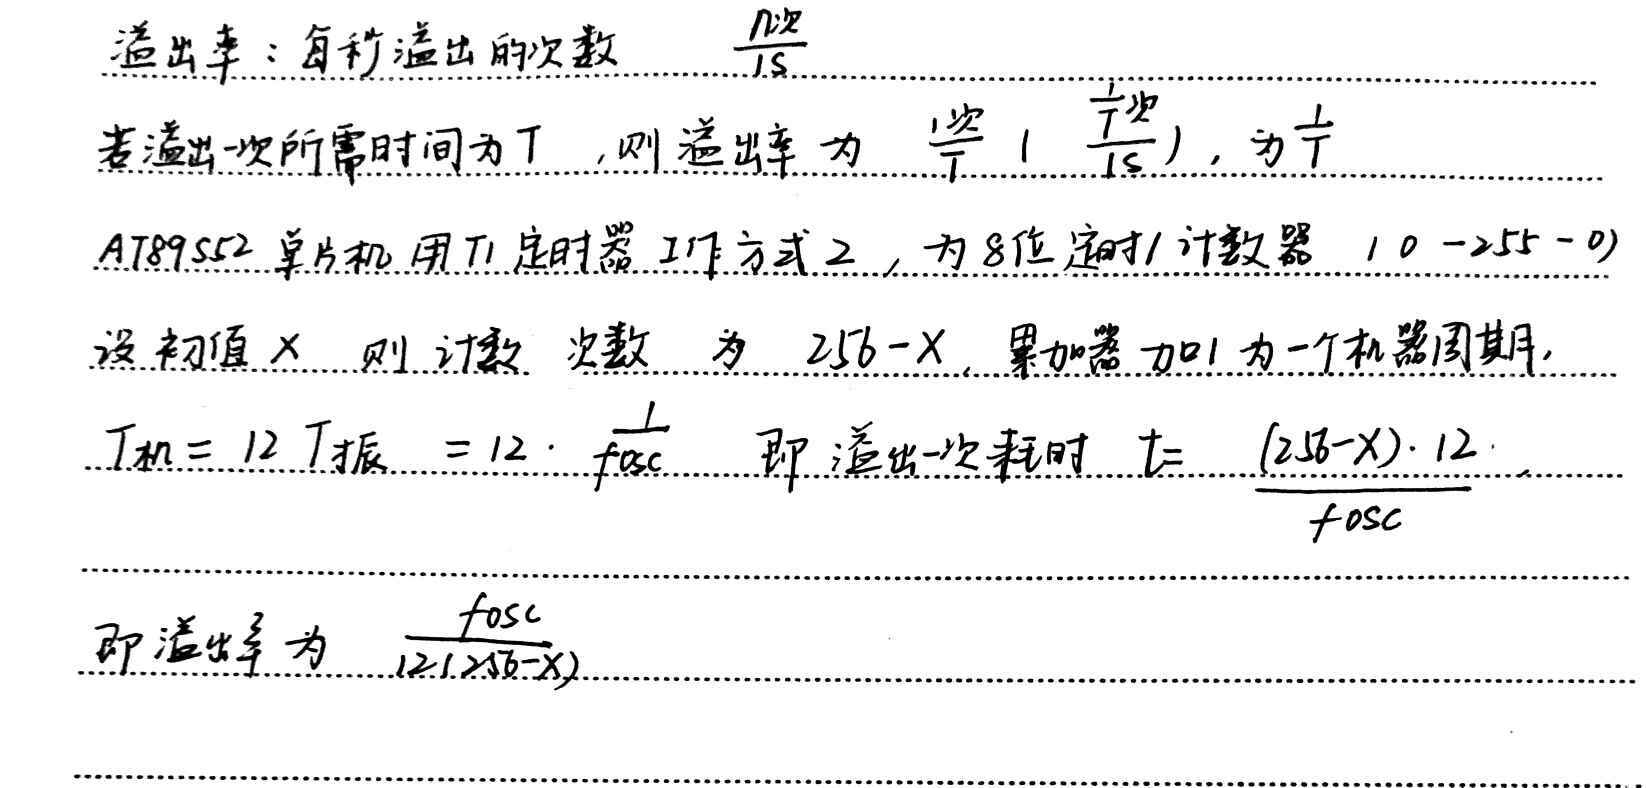 溢出率：每秒溢出的次数 n次/1S
若溢出一次所需时间为T，则溢出率为 1次/T ( 1/T次/1S )，为1/T
AT89S52 单片机用T1定时器工作方式2，为8位定时/计数器 (0-255-0)
设初值X 则计数次数为 256-X，累加器加1为一个机器周期，
T机 = 12 T振 = 12·1/fosc 即溢出一次耗时 t= (256-X)·12/fosc
即溢出率为 fosc/12(256-X)